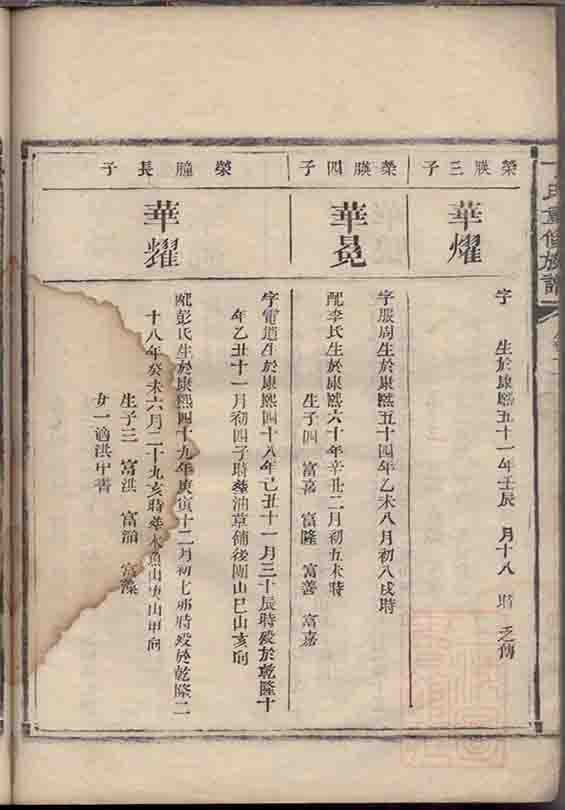 氏重修族譜
榮䐵三子
華燿
字 生於康熙五十一年壬辰 月十八 時 乏傳
榮䐵四子
華冕
字服周生於康熙五十四年乙未八月初八戌時
配李氏生於康熙六十年辛丑二月初五未時
生子四 富嘉 富隆 富善 富嘉
榮朣長子
華耀
字電道生於康熙四十八年己丑十一月三十辰時歿於乾隆十
年乙丑十一月初四子時葬油草舖後園山巳山亥向
配彭氏生於康熙四十九年庚寅十二月初七卯時歿於乾隆二
十八年癸未六月二十九亥時葬木魚山庚山甲向
生子三 富洪 富瀚 富藻
女一適洪中書